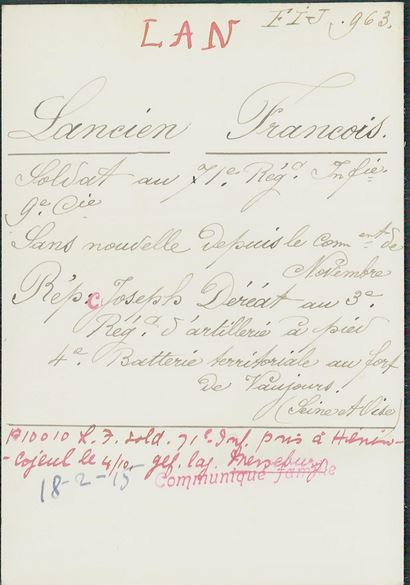 LAN
F I J. 963.
Lancien Francois.
Soldat au 71e Régt Infie
9e Cie
Sans nouvelle depuis le comment de
Novembre
Rép: c Joseph Déréat au 3e
Régt d'artillerie à pied
4e Batterie territoriale au fort
de Vaujours.
(Seine et Oise)
P10010 L. F. sold. 71e Inf. pris à Hénin-
-Cojeul le 4/10 gef. lag. Merseburg
18-2-15 Communiqué famille